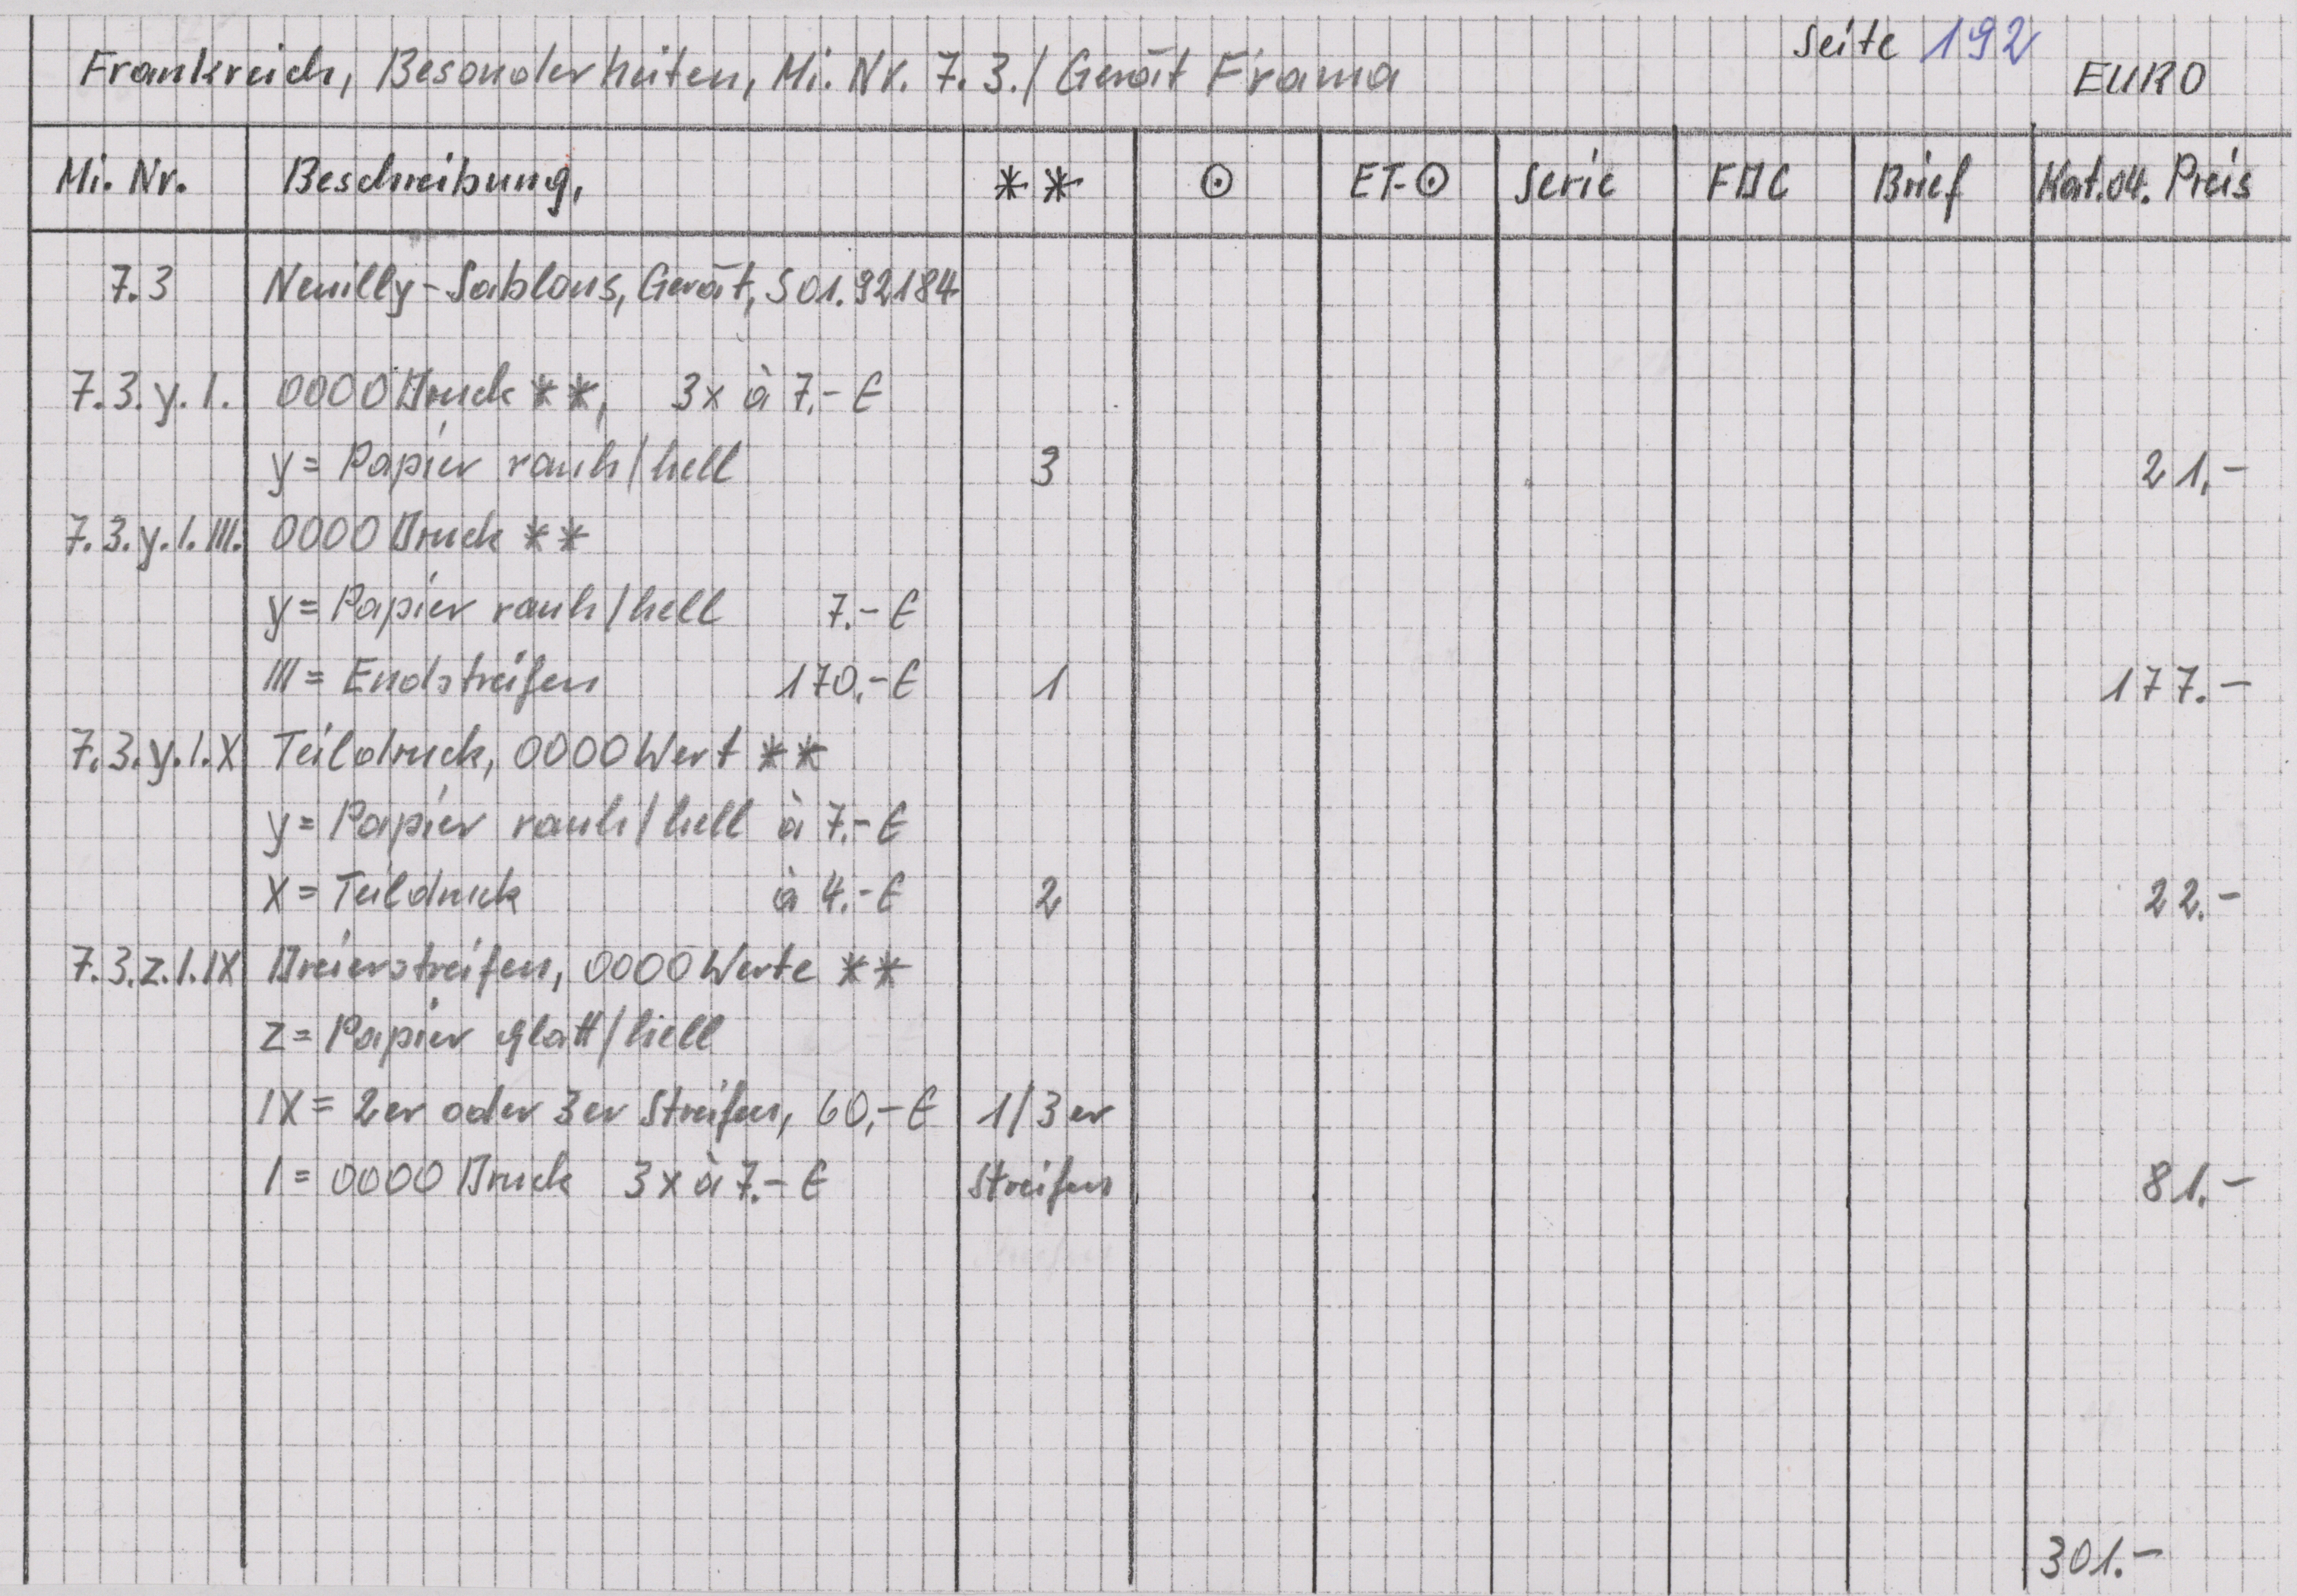 Seite 192
Frankreich, Besonderheiten, Mi. Nr. 7.3./ Gerät Frama EURO
Mi. Nr. Beschreibung, ** ⊙ ET-⊙ Serie FDC Brief Kat.04. Preis
7.3 Neuilly-Sablons, Gerät, S01.92184
7.3.y.I. 0000 Druck **, 3x à 7,- €
y = Papier rauh/hell 3 21,-
7.3.y.I.III. 0000 Druck **
y = Papier rauh/hell 7.- €
III = Endstreifen 170,- € 1 177.-
7.3.y.I.X Teildruck, 0000 Wert **
y = Papier rauh/hell à 7.- €
X = Teildruck à 4.- € 2 22.-
7.3.z.I.IX Dreierstreifen, 0000 Werte **
z = Papier glatt/hell
IX = 2er oder 3er Streifen, 60,- € 1/3er
I = 0000 Druck 3x à 7.- € Streifen 81.-
301.-